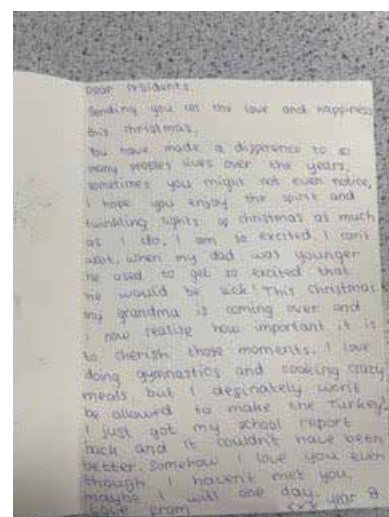 Dear residents
Sending you all the love and happiness
this christmas.
You have made a difference to so
many peoples lives over the years,
sometimes you might not even notice,
i hope you enjoy the spirit and
twinkling lights of christmas as much
as I do. I am so excited, I can't
wait, when my dad was younger
he used to get so excited that
he would be sick! This christmas
my grandma is coming over and
i now realise how important it is
to cherish those moments. I love
doing gymnastics and cooking crazy
meals, but I definately won't
be allowed to make the Turkey!
I just got my school report
back and it couldn't have been
better. Somehow I love you even
though I haven't met you,
maybe I will one day.
Love from xxx year 8